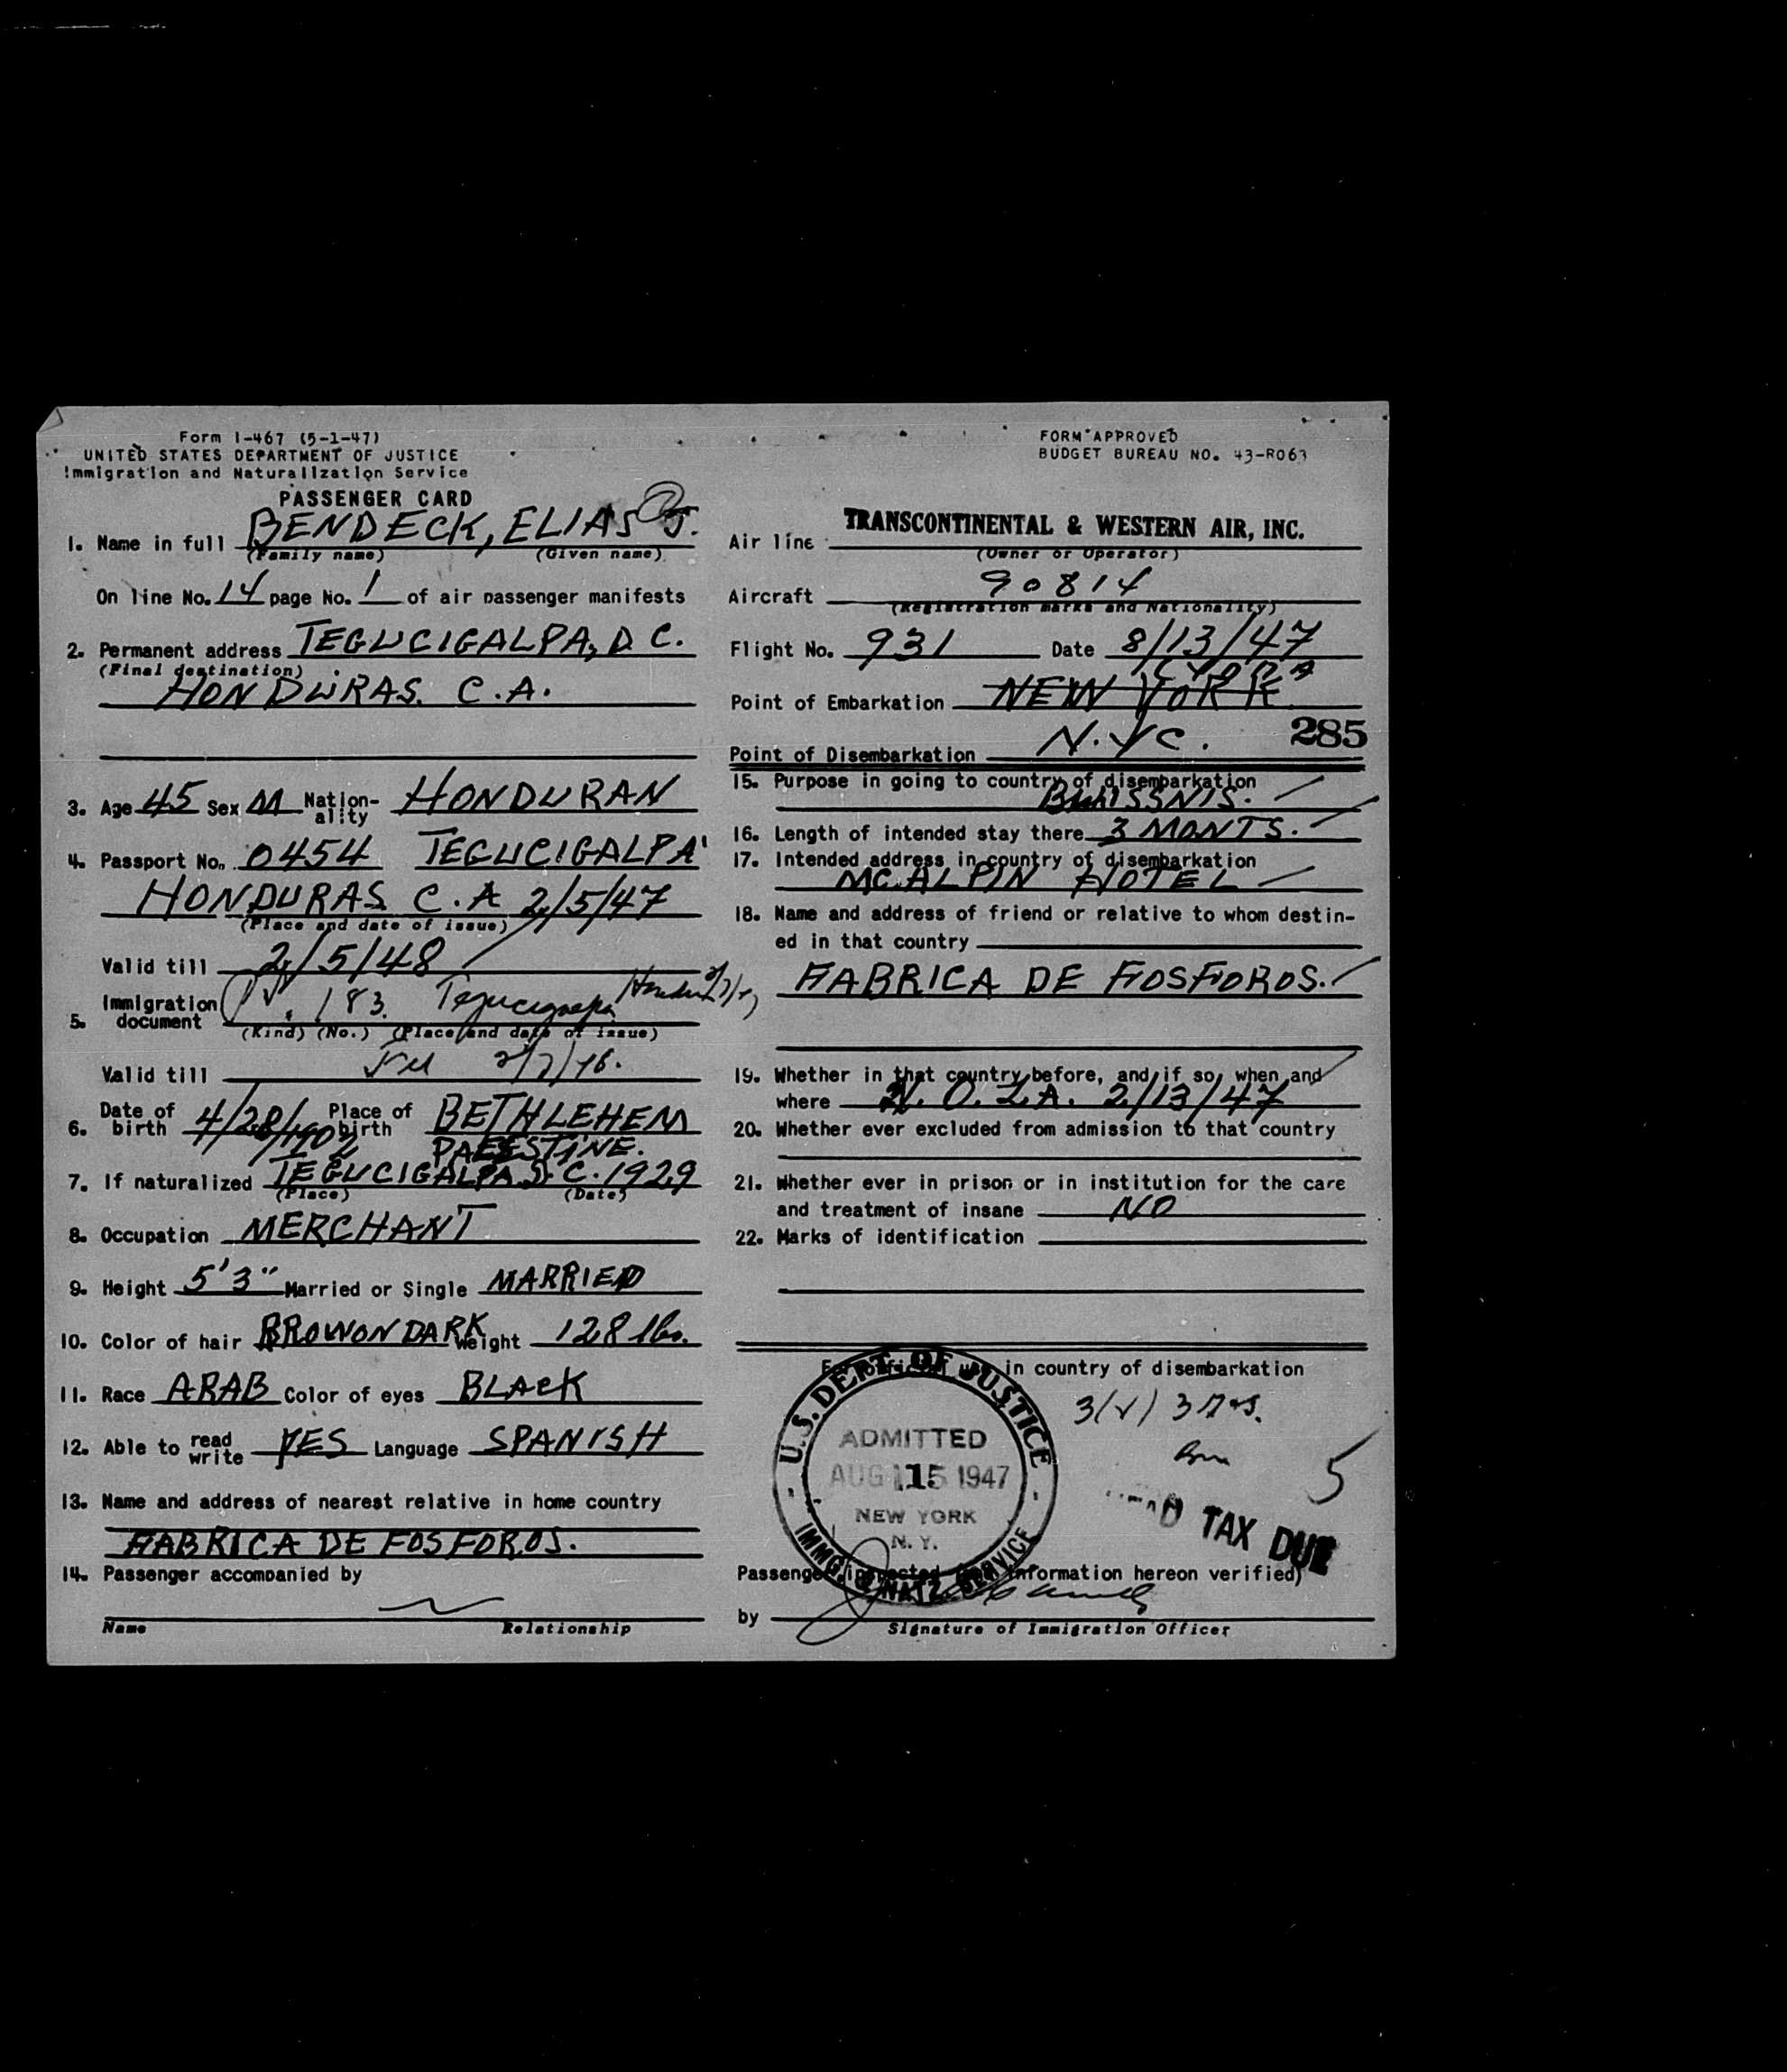 Form I-467 (5-1-47)
UNITED STATES DEPARTMENT OF JUSTICE
Immigration and Naturalization Service
PASSENGER CARD
1. Name in full BENDECK, ELIAS J.
(Family name) (Given name)
On line No. 14 page No. 1 of air passenger manifests
2. Permanent address TEGUCIGALPA, D.C.
(Final destination)
HONDURAS. C.A.
3. Age 45 Sex M Nation-ality HONDURAN
4. Passport No. 0454 TEGUCIGALPA
HONDURAS C.A 2/5/47
(Place and date of issue)
Valid till 2/5/48
5. Immigration document PV. 183. Tegucigalpa
(Kind) (No.) (Place and date of issue)
Valid till
6. Date of birth 4/28/1902 Place of birth BETHLEHEM
PAESTINE.
7. If naturalized TEGUCIGALPA D.C. 1929
(Place) (Date)
8. Occupation MERCHANT
9. Height 5'3" Married or Single MARRIED
10. Color of hair BROWON DARK Weight 128 lbs.
11. Race ARAB Color of eyes BLACK
12. Able to read write YES Language SPANISH
13. Name and address of nearest relative in home country
FABRICA DE FOSFOROS.
14. Passenger accompanied by
Name Relationship
FORM APPROVED
BUDGET BUREAU NO. 43-R063
TRANSCONTINENTAL & WESTERN AIR, INC.
Air line
(Owner or Operator)
Aircraft 90814
(Registration marks and Nationality)
Flight No. 931 Date 8/13/47
LYDDA
Point of Embarkation NEW YORK
285
Point of Disembarkation N.YC.
15. Purpose in going to country of disembarkation
BUISSNIS.
16. Length of intended stay there 3 MONTS.
17. Intended address in country of disembarkation
MC.ALPIN HOTEL
18. Name and address of friend or relative to whom destin-
ed in that country
FABRICA DE FOSFOROS.
19. Whether in that country before, and if so, when and
where N.O.LA. 2/13/47
20. Whether ever excluded from admission to that country
21. Whether ever in prison or in institution for the care
and treatment of insane NO
22. Marks of identification
For official use in country of disembarkation
U.S. DEPT. OF JUSTICE
ADMITTED
AUG 15 1947
NEW YORK
N.Y.
IMMG. & NATZ. SERVICE
5
HEAD TAX DUE
Passenger inspected information hereon verified)
by
Signature of Immigration Officer